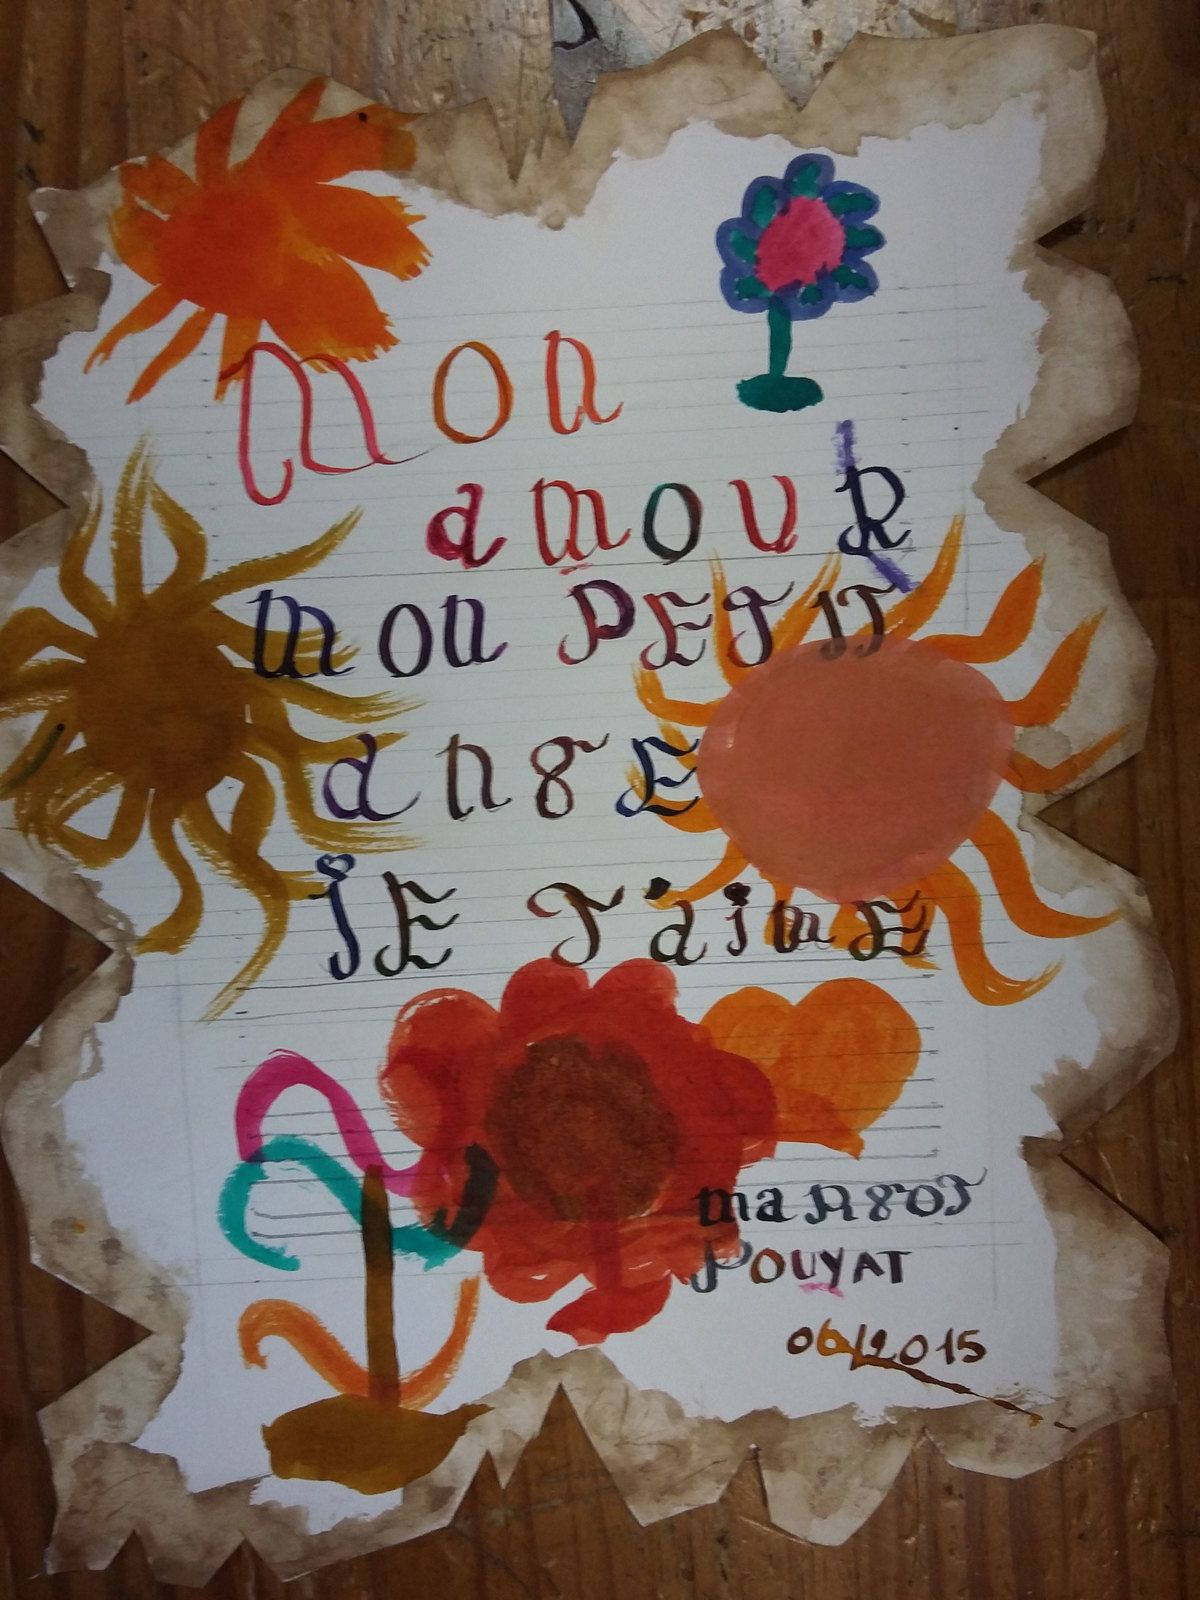 mon
amour
mon PETIT
angE
jE T'aimE
maRgoT
POUYAT
06/2015